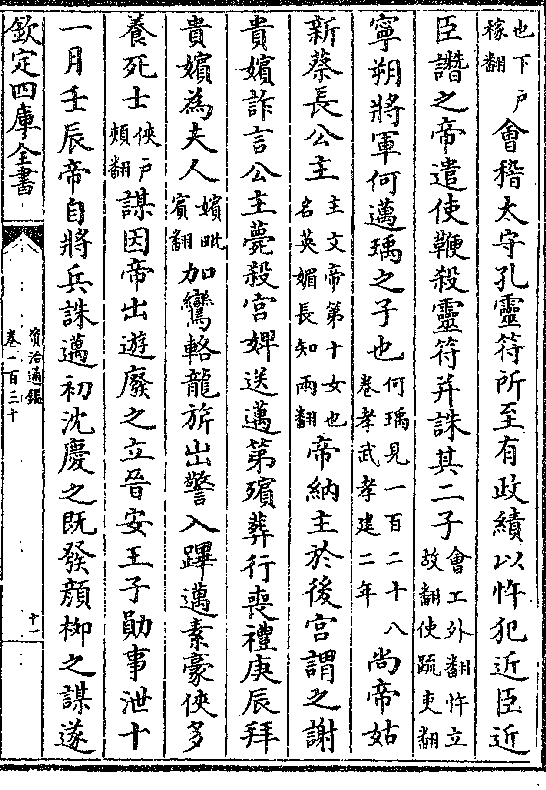 也下戶稼翻會稽太守孔靈符所至有政績以忤犯近臣近
臣譖之帝遣使鞭殺靈符并誅其二子會工外翻忤五故翻使疏吏翻
寧朔將軍何邁瑀之子也何瑀見一百二十八卷孝武孝建二年尚帝姑
新蔡長公主主文帝第十女也名英媚長知兩翻帝納主於後宮謂之謝
貴嬪詐言公主薨殺宮婢送邁第殯葬行喪禮庚辰拜
貴嬪為夫人嬪毗賓翻加鸞輅龍旂出警入蹕邁素豪俠多
養死士俠戶頰翻謀因帝出遊廢之立晉安王子勛事泄十
一月壬辰帝自將兵誅邁初沈慶之既發顏柳之謀遂
欽定四庫全書
資治通鑑
卷一百三十
十一